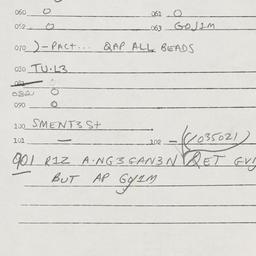 060 O 061 O
062 O 063 GOJ1M
070 )-PACT... QAP ALL BEADS
080 TU.L3
O
090 O
100 SMENT3 St
101 — 102 — (1035021)
Q01 R1Z A.NG3GAN3N QET
BUT AP GOJ1M